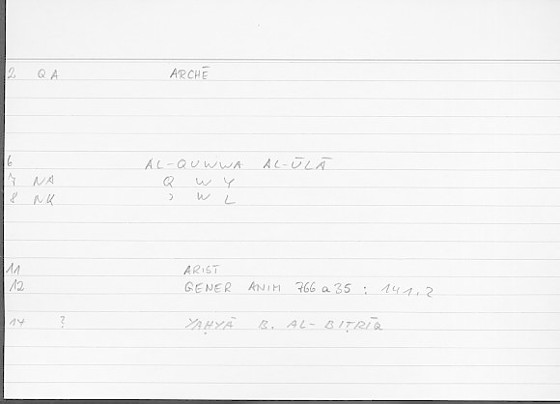 2 QA ARCHĒ
6 AL-QUWWA AL-ŪLĀ
7 NA Q W Y
8 NK ʾ W L
11 ARIST
12 GENER ANIM 766a35 : 141.2
14 ? YAḤYĀ B. AL-BIṬRĪQ